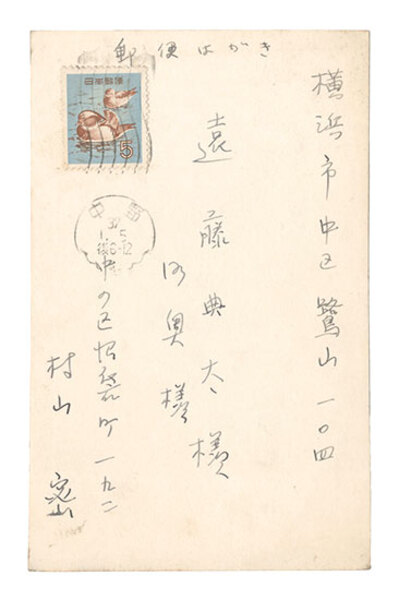 郵便はがき
日本郵便
5
横浜市中区鷺山一〇四
遠藤典太様
奥様
中野
後6-12
中の区 町一九二
村山 密